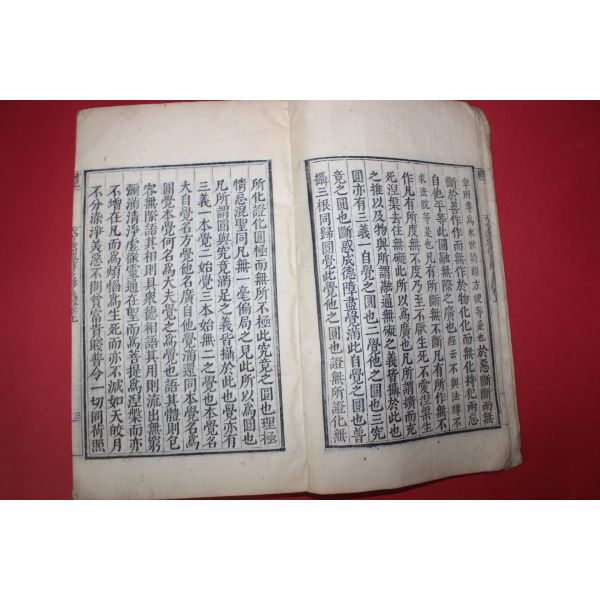 方便等是也於惡斷斷而無
斷於善作作而無作於物化化而無化持犯兩忘
自他平等此圓融無際之廣也經云不與法縛不
求法脫等是也凡有所斷無不斷凡有所作無不
作凡有所度無不度乃至不厭生死不愛涅槃生
死涅槃去住無礙此所以爲廣也凡所謂擴而充
之推以及物與所謂融通無礙之義皆攝於此也
圓亦有三義一自覺之圓也二覺他之圓也三究
竟之圓也斷惑成德障盡覺滿此自覺之圓也普
攝三根同歸圓覺此覺他之圓也證無所證化無
所化證化圓極而無所不極此究竟之圓也理極
情忘混聖同凡無一毫偏局之見此所以爲圓也
凡所謂圓與究竟滿足之義皆攝於此也覺亦有
三義一本覺二始覺三本始無二之覺也本覺名
大自覺名方覺他名廣自他覺滿還同本覺名爲
圓覺本覺何名爲大夫覺之爲覺也語其體則包
容無際語其相則具衆德相語其用則流出無窮
彌滿清淨虛徹靈通在聖而爲菩提爲涅槃而亦
不增在凡而爲煩惱爲生死而亦不減如天皎月
不分染淨美惡不問貧富貴賤普令一切同荷照
三